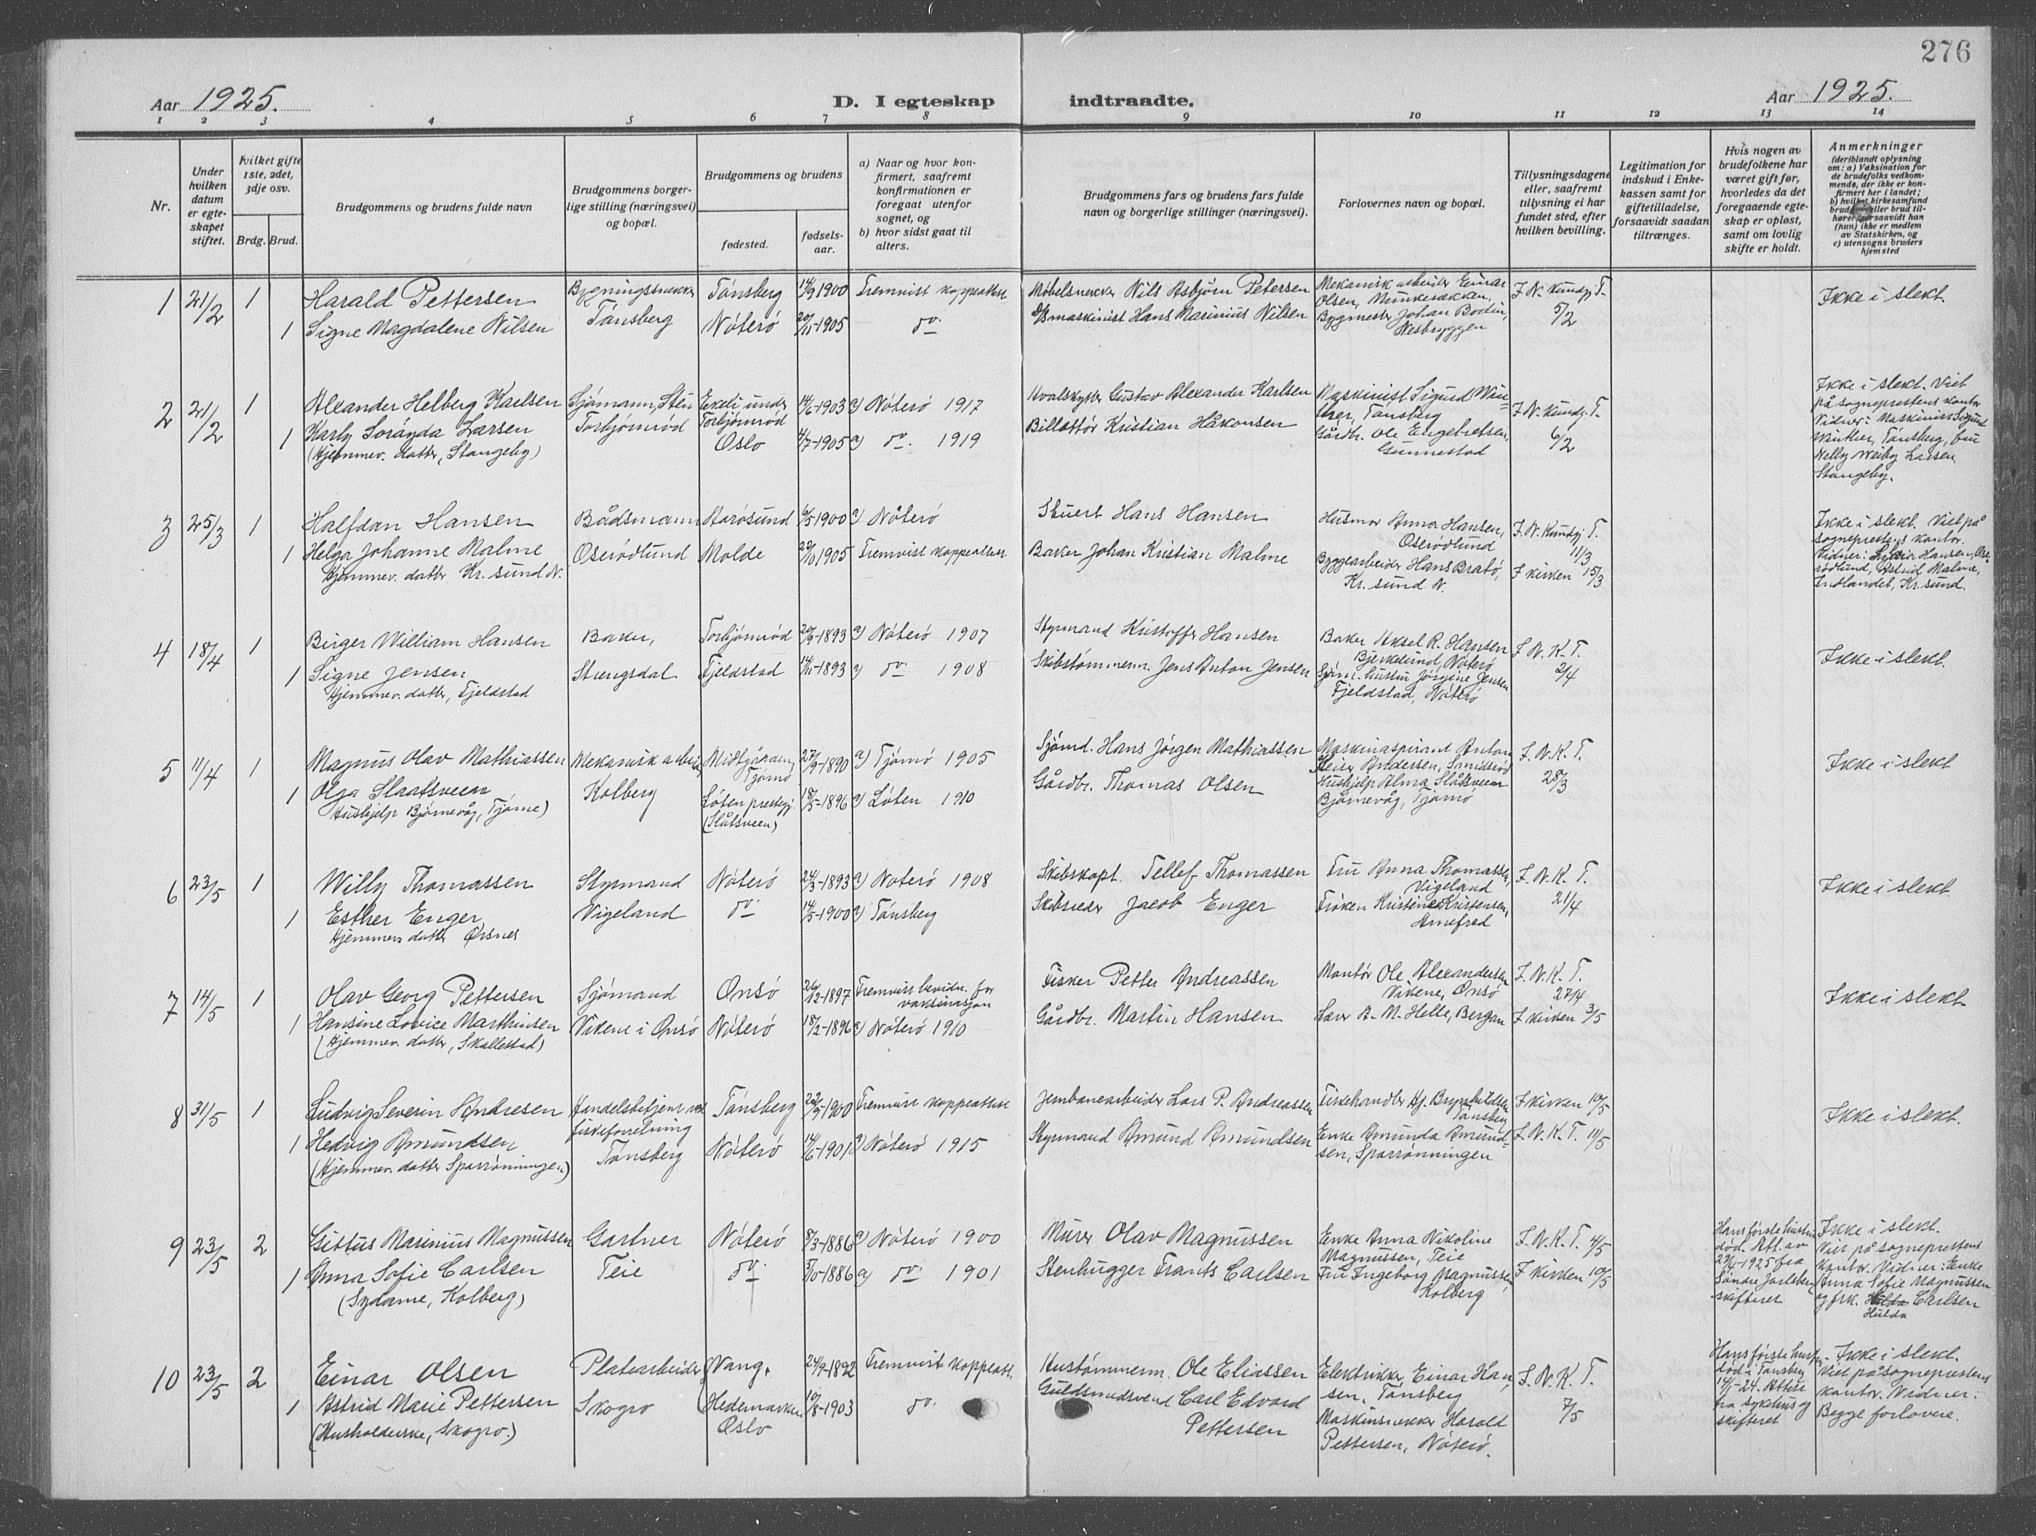 276
Aar 1925.
D. I egteskap indtraadte.
Aar 1925.
1 2 3 4 5 6 7 8 9 10 11 12 13 14
Nr.
Under hvilken datum er egteskapet stiftet.
hvilket gifte 1ste, 2det, 3dje osv.
Brdg. Brud.
Brudgommens og brudens fulde navn
Brudgommens borgerlige stilling (næringsvei) og bopæl.
Brudgommens og brudens
fødested.
fødselsaar.
a) Naar og hvor konfirmert, saafremt konfirmationen er foregaat utenfor sognet, og
b) hvor sidst gaat til alters.
Brudgommens fars og brudens fars fulde navn og borgerlige stillinger (næringsvei).
Forlovernes navn og bopæl.
Tillysningsdagene eller, saafremt tillysning ei har fundet sted, efter hvilken bevilling.
Legitimation for indskud i Enkekassen samt for giftetilladelse, forsaavidt saadan tiltrænges.
Hvis nogen av brudefolkene har været gift før, hvorledes da det foregaaende egteskap er opløst, samt om lovlig skifte er holdt.
Anmerkninger
(deriblandt oplysning om: a) Vaksination for de brudefolks vedkommende, der ikke er konfirmert her i landet; b) hvilket kirkesamfund brudgom eller brud tilhører, forsaavidt han (hun) ikke er medlem av Statskirken, og c) utensogns bruders hjemsted
1 21/2 1 Harald Pettersen Bygningssnekker Tønsberg 14/9 1900 Fremvist koppeattest Møbelsnekker Nils Asbjørn Petersen Mekanisk arbeider Einar Olsen, Munkerækken, F. N. Kundgj. T. 5/2 Ikke i slekt
1 Signe Magdalene Nilsen Tønsberg Nøterø 20/11-1905 do Maskinist Hans Marinius Nilsen Bygmester Johan Bodin, Nesbryggen
2 21/2 1 Alexander Helberg Karlsen Sjømann, Torbjørnrød Ekeli under Torbjørnrød 14/6-1903 a) Nøterø 1917 Hvalskytter Gustav Alexander Karlsen Maskinist Sigurd Winther, Tønsberg F. N. Kundgj. T. 6/2
1 Karly Soranda Larsen Oslo 4/7-1905 a) do. 1919 Billettør Kristian Håkonsen Gårdbr. Ole Engebretsen, Gunnestad
(Hjemmev. datter, Stangeby)
Ikke i slekt. Viet på sogneprestens kontor Vidner: Maskinist Sigurd Winther, Tønsberg, fru Nelly Weiby Larsen Stangeby.
3 25/3 1 Halfdan Hansen Bådsmann Aarøsund 6/5 1900 a) Nøterø Stuert Hans Hansen Husmor Anna Hansen, Oserødlund F. N. Kundgj. T. 11/3
1 Helga Johanne Malme Oserødlund Molde 29/10 1905 Fremvist koppeattest Baker Johan Kristian Malme Byggearbeider Hans Bratø, Kr. sund N. I kirken 15/3
Hjemmev. datter Kr. sund N.
Ikke i slekt. Viet på sogneprestens kontor. Vidner: Hansen, Oserødlund, Astrid Malme, Indlandet, Kr. sund.
4 18/4 1 Birger William Hansen Baker, Torbjørnrød 20/9-1893 a) Nøterø 1907 Styrmand Kristoffer Hansen Baker Aksel R. Hansen Bjerkelund, Nøterø F. N. K. T. 2/4 Ikke i slekt.
1 Signe Jensen Strengsdal Fjeldstad 14/11-1893 a) do 1908 Skibstømmerm. Jens Anton Jensen Sjøm. hustru Jørgine Jensen Fjeldstad, Nøterø
Hjemmev. datter, Fjeldstad
5 11/4 1 Magnus Olav Mathiassen Mekanisk arbeider Midtgården, Tjømø 27/9-1890 a) Tjømø 1905 Sjømd. Hans Jørgen Mathiassen Maskinaspirant Anton Andersen, Smidsrød F. N. K. T. 28/3 Ikke i slekt
1 Olga Slaatsveen Kolberg Løten prestegj. (Slåtsveen) 18/5-1896 a) Løten 1910 Gårdbr. Thomas Olsen Hushjelp Alma Slåtsveen Bjørnevåg, Tjømø
Hushjelp Bjørnevåg, Tjøme)
6 23/5 1 Willy Thomassen Styrmand Nøterø 24/3-1893 a) Nøterø 1908 Skibskapt. Tellef Thomassen Fru Anna Thomassen, Vigeland F. N. K. T. 21/4 Ikke i slekt
1 Esther Enger Vigeland do 14/5-1900 a) Tønsberg Skibsreder Jacob Enger Frøken Kristine Kristensen, Arnefred
Hjemmev datter Ørsnes
7 14/5 1 Olav Georg Pettersen Sjømand Onsø 26/12-1897 Fremvist bevidn. for vaksinasjon Fisker Petter Andreassen Montør Ole Alexandersen Vikene, Onsø F. N. K. T. 27/4 Ikke i slekt
1 Hansine Lovice Marthinsen Vikene i Onsø Nøterø 18/2-1896 a) Nøterø 1910 Gårdbr. Martin Hansen Lærer B. M. Helle, Bergan I kirken 3/5
(Hjemmev. datter, Skallestad)
8 31/5 1 Ludvig Severin Andresen Handelsbetjent ved fiskeforretning Tønsberg 22/9-1900 Fremvist koppeattest Jernbanearbeider Lars P. Andreassen Fiskehandler Hj. Brynhildsen Tønsberg I kirken 10/5 Ikke i slekt.
1 Hedvig Amundsen Tønsberg Nøterø 14/6-1901 a) Nøterø 1915 Styrmand Amund Amundsen Enke Amunda Amundsen, Sparrønningen F. N. K. T. 11/5
(Hjemmev. datter Sparrønningen)
9 23/5 2 Gittus Marinius Magnussen Gartner Nøterø 8/3-1886 a) Nøterø 1900 Murer Olav Magnussen Enke Anna Nikoline Magnussen, Teie F. N. K. T. 4/5
1 Anna Sofie Carlsen Teie do. 5/10-1886 a) do. 1901 Stenhugger Frants Carlsen Fru Ingeborg Magnussen, Kolberg I kirken 10/5
(Sydame, Kolberg)
Hans første hustru død. Att. av 29/4-1925 fra Søndre Jarlsberg skifteret
Ikke i slekt. Viet på sogneprestens kontor. Vidner: Enke Anna Sofie Magnussen og frk. Hulda Carlsen
Hulda
10 23/5 2 Einar Olsen Platearbeider Vang, (Hedemarken) 24/9-1892 Fremvist koppeatt. Hustømmerm. Ole Eliassen Elektriker Einar Hansen, Tønsberg F. N. K. T. 7/5
1 Astrid Marie Pettersen Skogro Oslo 10/8-1903 do. Guldsmedsvend Carl Edvard Pettersen Maskinsnekker Harald Pettersen, Nøterø.
(Husholderske, Skogro.)
Hans første hustru død i Tønsberg 14/1-24. Attest fra sykehus og skifteret
Ikke i slekt. Viet på sogneprestens kontor. Vidner: Begge forlovere.